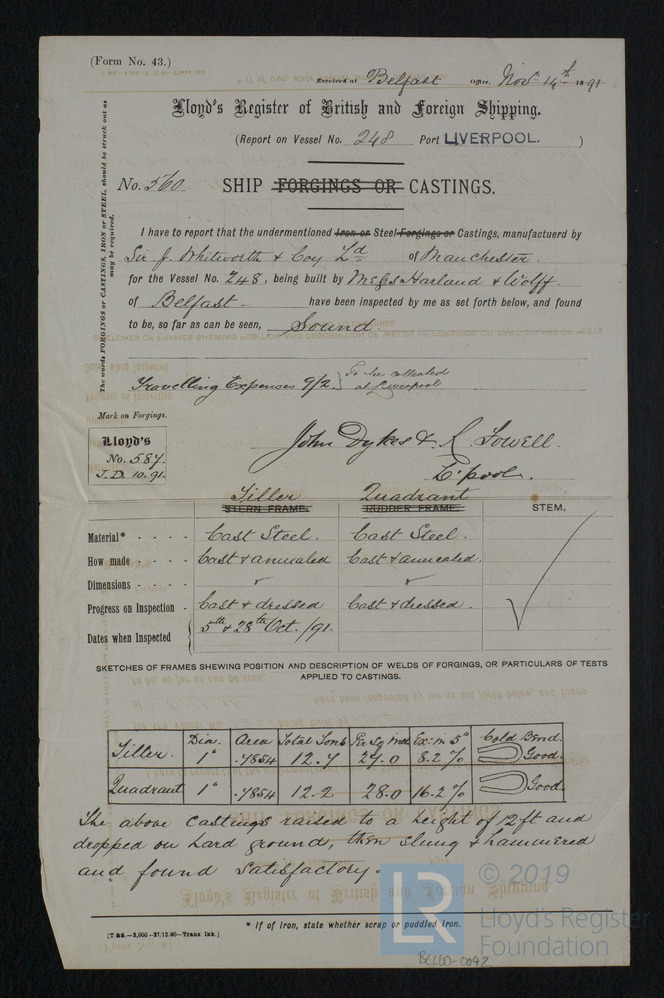 (Form No. 43.)
Received at Belfast Office, Nov 14th 1891
Lloyd's Register of British and Foreign Shipping.
(Report on Vessel No. 248 Port LIVERPOOL. )
No. 560. SHIP FORGINGS OR CASTINGS.
The words FORGINGS or CASTINGS, IRON or STEEL, should be struck out as may be required.
I have to report that the undermentioned Iron or Steel Forgings or Castings, manufactuerd by
Sir J. Whitworth & Coy Ld of Manchester.
for the Vessel No. 248, being built by Messrs Harland & Wolff
of Belfast have been inspected by me as set forth below, and found
to be, so far as can be seen, Sound.
Travelling Expenses 9/2 } To be collected
at Liverpool
Mark on Forgings.
Lloyd's
No. 587.
J.D. 10.91.
John Dykes & R. Lowell.
L'pool.
Tiller Quadrant
STERN FRAME. RUDDER FRAME. STEM.
Material* - - - - Cast Steel. Cast Steel.
How made - - - - Cast & annealed Cast & annealed.
Dimensions - - - - ✓ ✓ ✓
Progress on Inspection - Cast & dressed Cast & dressed.
Dates when Inspected { 5th & 28th Oct. /91.
SKETCHES OF FRAMES SHEWING POSITION AND DESCRIPTION OF WELDS OF FORGINGS, OR PARTICULARS OF TESTS
APPLIED TO CASTINGS.
Dia. Area Total Tons Per Sq Inch Ex: in 5" Cold Bend.
Tiller. 1" .7854 12.7 29.0 8.2 % Good.
Quadrant 1" .7854 12.2 28.0 16.2 % Good
The above castings raised to a height of 12 ft and
dropped on hard ground, then slung & hammered
and found satisfactory.
* If of Iron, state whether scrap or puddled Iron.
[T &S.—3,000—37/12 90—Trans. Ink.]
© 2019
LR
Lloyd's Register
Foundation
BEL60-0042